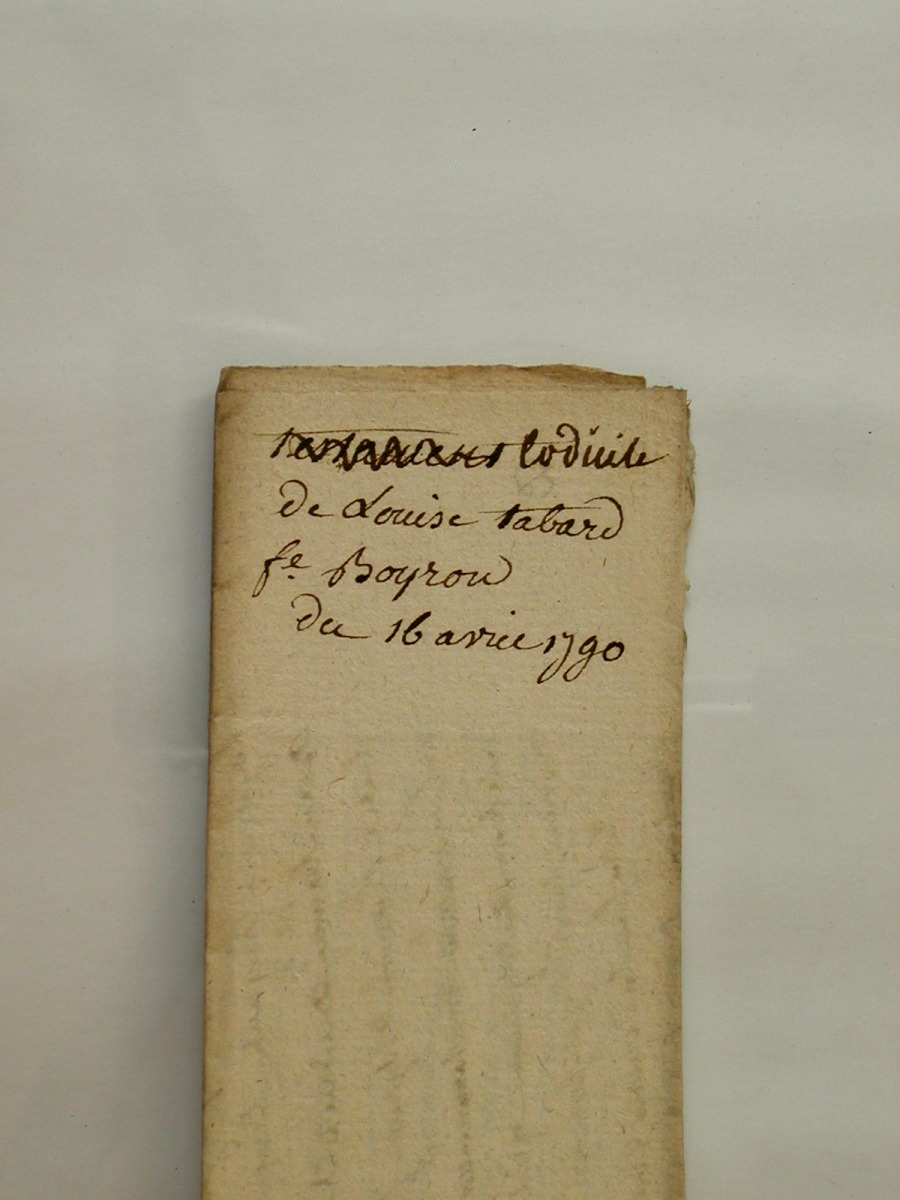 testament Codicile
de Louise tabard
fe. Boyron
du 16 avril 1790